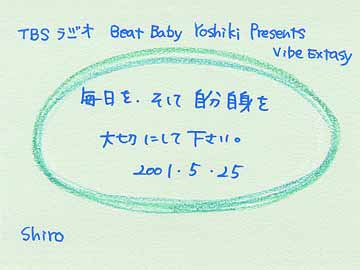 TBS ラジオ Beat Baby Yoshiki Presents
Vibe Extasy
毎日を、そして 自分自身を
大切にして下さい。
2001・5・25
Shiro